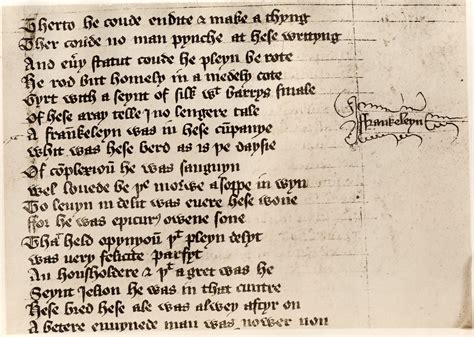 Therto he coude endite & make a thyng
Ther coude no man pynche at hese writyng
And eũy statut coude he pleyn be rote
He rod but homely in a medely cote
Gyrt with a seynt of silk wt barrys smale
Of hese aray telle j no lengere tale
A frankeleyn was in hese cũpanye
Frankeleyn
whit was hese berd as is ye daysie
Of cõplexioũ he was sanguyn
wel louede he ye morwe a soppe in wyn
To leuyn in delit was euere hese wone
ffor he was epicurꝭ owene sone
That held opynyoũ yt pleyn delyt
was very felicite parfyt
An housholdere & yt a gret was he
Seynt Jelion he was in that cuntre
Hese bred hese ale was alwey aftyr on
A betere enuyned man was nower non